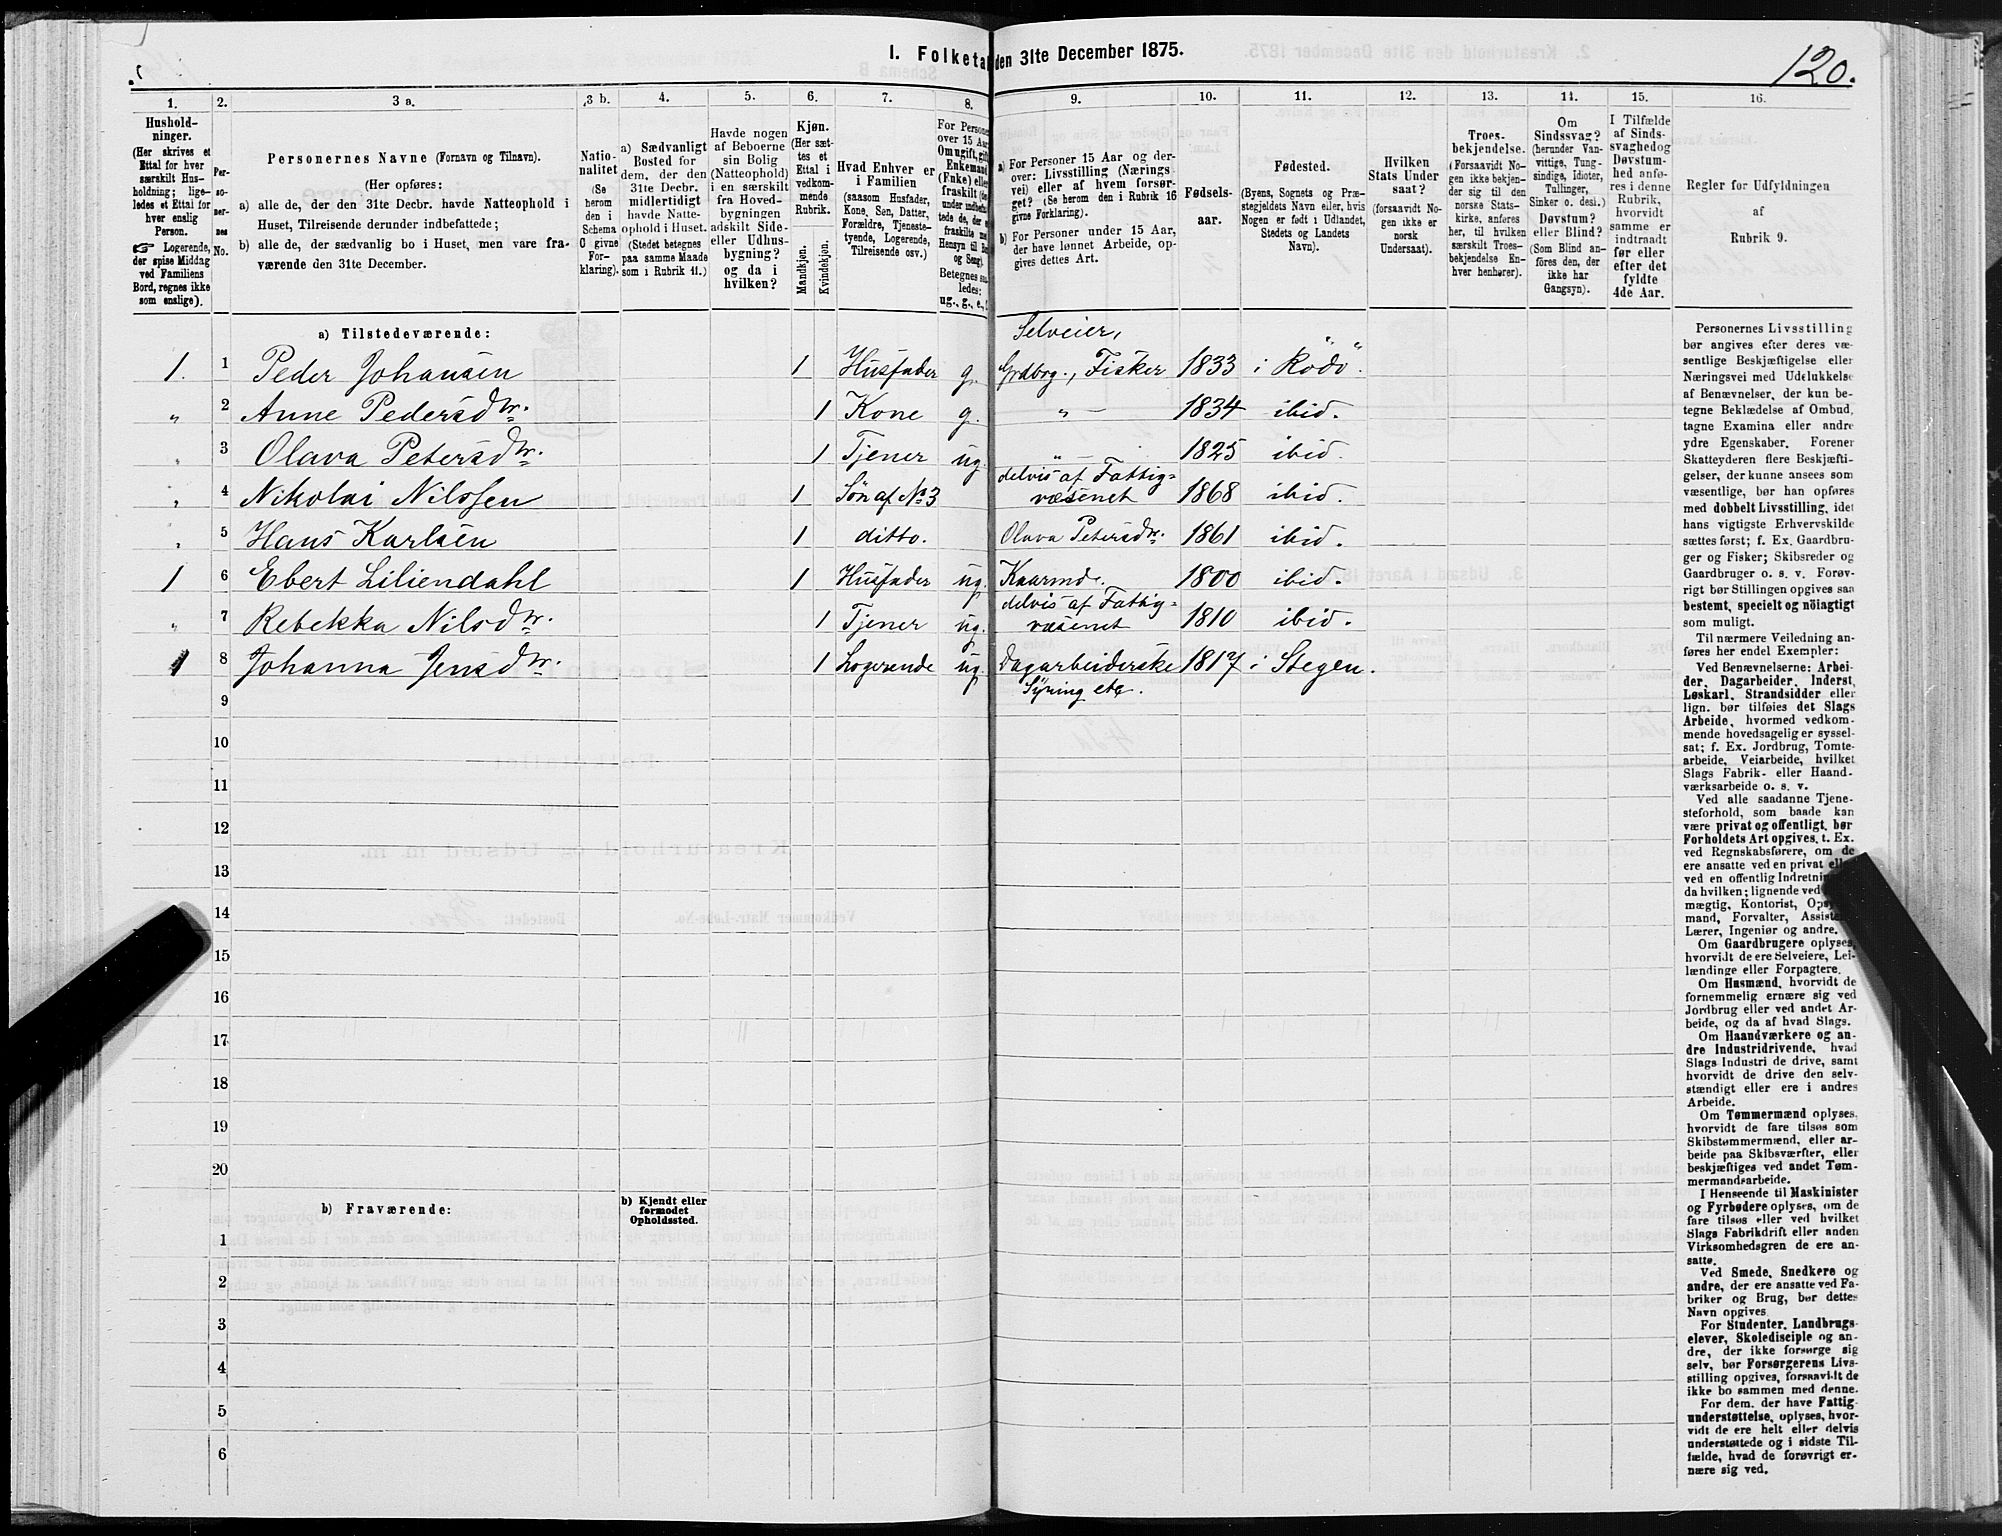 I. Folketal den 31te December 1875.
120.
1. 2. 3 a. 3 b. 4. 5. 6. 7. 8. 9. 10. 11. 12. 13. 14. 15. 16.
Hushold-
ninger.
(Her skrives et
Ettal for hver
særskilt Hus-
holdning; lige-
ledes et Ettal for
hver enslig
Person.
☞ Logerende,
der spise Middag
ved Familiens
Bord, regnes ikke
som enslige).
Per-
so-
ner-
nes
No.
Personernes Navne (Fornavn og Tilnavn).
(Her opføres:
a) alle de, der den 31te Decbr. havde Natteophold i
Huset, Tilreisende derunder indbefattede;
b) alle de, der sædvanlig bo i Huset, men vare fra-
værende den 31te December.
Natio-
nalitet
(Se
herom
den i
Schema
O givne
For-
klaring).
a) Sædvanligt
Bosted for
dem, der den
31te Decbr.
midlertidigt
havde Natte-
ophold i Huset.
(Stedet betegnes
paa samme Maade
som i Rubrik 11.)
Havde nogen
af Beboerne
sin Bolig
(Natteophold)
i en særskilt
fra Hoved-
bygningen
adskilt Side-
eller Udhus-
bygning?
og da i
hvilken?
Kjøn.
(Her sæt-
tes et
Ettal i
vedkom-
mende
Rubrik.
Mandkjøn.
Kvindekjøn.
Hvad Enhver er
i Familien
(saasom Husfader,
Kone, Søn, Datter,
Forældre, Tjeneste-
tyende, Logerende,
Tilreisende osv.)
For Personer
over 15 Aar
Om ugift, gift
Enkemand
(Enke) eller
fraskilt
Betegnes saa-
ledes:
ug., g., e.,
a) For Personer 15 Aar og der-
over: Livsstilling (Nærings-
vei) eller af hvem forsør-
get? (Se herom den i Rubrik 16
givne Forklaring).
b) For Personer under 15 Aar,
der have lønnet Arbeide, op-
gives dettes Art.
Fødsels-
aar.
Fødested.
(Byens, Sognets og Præ-
stegjeldets Navn eller, hvis
Nogen er født i Udlandet,
Stedets og Landets
Navn).
Hvilken
Stats Under
saat?
(forsaavidt No-
gen ikke er
norsk
Undersaat).
Troes-
bekjendelse.
(Forsaavidt No-
gen ikke bekjen-
der sig til den
norske Stats-
kirke, anføres
her, til hvilken
særskilt Troes-
bekjendelse En-
hver henhører).
Om
Sindssvag?
(herunder Van-
vittige, Tung-
sindige, Idioter,
Tullinger,
Sinker o. desl.)
Døvstum?
eller Blind?
(Som Blind an-
føres den, der
ikke har
Gangsyn).
I Tilfælde
af Sinds-
svaghed og
Døvstum-
hed anfø-
res i denne
Rubrik,
hvorvidt
samme er
indtraadt
før eller
efter det
fyldte
4de Aar.
Regler for Udfyldningen
af
Rubrik 9.
a) Tilstedeværende:
Selveier,
1. 1 Peder Johansen 1 Husfader g. Grdbrg., Fisker 1833 i Rödö.
„ 2 Anne Pedersdtr. 1 Kone g. „ 1834 ibid.
„ 3 Olava Petersdtr. 1 Tjener ug. „ 1825 ibid.
delvis af Fattig=
„ 4 Nikolai Nilssen 1 Søn af No 3 væsenet 1868 ibid.
„ 5 Hans Karlsen 1 ditto. Olava Petersdtr. 1861 ibid.
1 6 Ebert Liliendahl 1 Husfader ug. Kaarmd. 1800 ibid.
delvis af Fattig=
„ 7 Rebekka Nilsdtr. 1 Tjener ug. væsenet 1810 ibid.
1 8 Johanna Jensdtr. 1 Logerende ug. Dagarbeiderske 1817 i Stegen.
9 Syning etc.
10
11
12
13
14
15
16
17
18
19
20
b) Fraværende:
b) Kjendt eller
formodet
Opholdssted.
1
2
3
4
5
6
Personernes Livsstilling
bør angives efter deres væ-
sentlige Beskjæftigelse eller
Næringsvei med Udelukkelse
af Benævnelser, der kun be-
tegne Beklædelse af Ombud,
tagne Examina eller andre
ydre Egenskaber. Forener
Skatteyderen flere Beskjæfti-
gelser, der kunne ansees som
væsentlige, bør han opføres
med dobbelt Livsstilling, idet
hans vigtigste Erhvervskilde
sættes først; f. Ex. Gaardbru-
ger og Fisker; Skibsreder og
Gaardbruger o. s. v. Forøv-
rigt bør Stillingen opgives saa
bestemt, specielt og nøiagtigt
som muligt.
Til nærmere Veiledning an-
føres her endel Exempler:
Ved Benævnelserne: Arbei-
der, Dagarbeider, Inderst,
Løskarl, Strandsidder eller
lign. bør tilføies det Slags
Arbeide, hvormed vedkom-
mende hovedsagelig er syssel-
sat; f. Ex. Jordbrug, Tomte-
arbeide, Veiarbeide, hvilket
Slags Fabrik- eller Haand-
værksarbeide o. s. v.
Ved alle saadanne Tjene-
steforhold, som baade kan
være privat og offentligt, bør
Forholdets Art opgives, t. Ex.
ved Regnskabsførere, om de
ere ansatte ved en privat eller
ved en offentlig Indretning
da hvilken; lignende ved
mægtig, Kontorist, Opsyns-
mand, Forvalter, Assistent,
Lærer, Ingeniør og andre.
Om Gaardbrugere oplyses,
hvorvidt de ere Selveiere, Lei-
lændinge eller Forpagtere.
Om Husmænd, hvorvidt de
fornemmelig ernære sig ved
Jordbrug eller ved andet Ar-
beide, og da af hvad Slags.
Om Haandværkere og an-
dre Industridrivende, hvad
Slags Industri de drive, samt
hvorvidt de drive den selv-
stændigt eller ere i andres
Arbeide.
Om Tømmermænd oplyses,
hvorvidt de fare tilsøs som
Skibstømmermænd, eller ar-
beide paa Skibsværfter, eller
beskjæftiges ved andet Tøm-
mermandsarbeide.
I Henseende til Maskinister
og Fyrbødere oplyses, om de
fare tilsøs eller ved hvilket
Slags Fabrikdrift eller anden
Virksomhedsgren de ere an-
satte.
Ved Smede, Snedkere og
andre, der ere ansatte ved Fa-
briker og Brug, bør dettes
Navn opgives.
For Studenter, Landbrugs-
elever, Skoledisciple og an-
dre, der ikke forsørge sig
selv, bør Forsørgerens Livs-
stilling opgives, forsaavidt de
ikke bo sammen med denne.
For dem, der have Fattig-
understøttelse, oplyses, hvor-
vidt de ere helt eller delvis
understøttede og i sidste Til-
fælde, hvad de forøvrigt er-
nære sig ved.